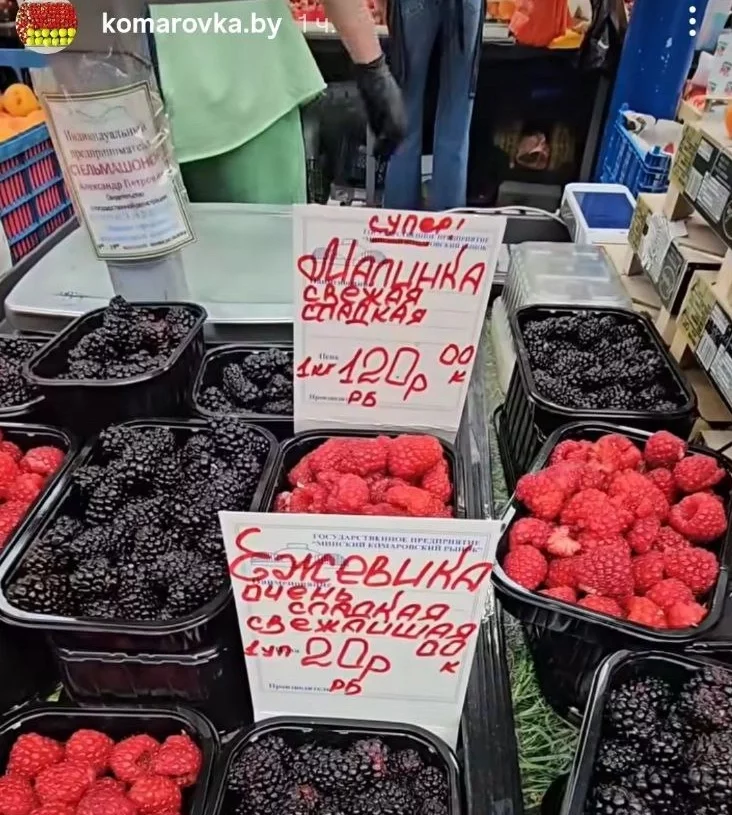 komarovka.by 1 ч.
Индивидуальный
предприниматель
СТЕЛЬМАШОНОК
Александр Петрович
СУПЕР!
ГОСУДАРСТВЕННОЕ ПРЕДПРИЯТИЕ
"МИНСКИЙ КОМАРОВСКИЙ РЫНОК"
МАЛИНКА
СВЕЖАЯ
СЛАДКАЯ
Цена
1кг 120р 00 к
Производитель РБ
ГОСУДАРСТВЕННОЕ ПРЕДПРИЯТИЕ
"МИНСКИЙ КОМАРОВСКИЙ РЫНОК"
ЕЖЕВИКА
Наименование
ОЧЕНЬ
СЛАДКАЯ
СВЕЖАЙШАЯ
1уп 20р 00 к
Производитель РБ